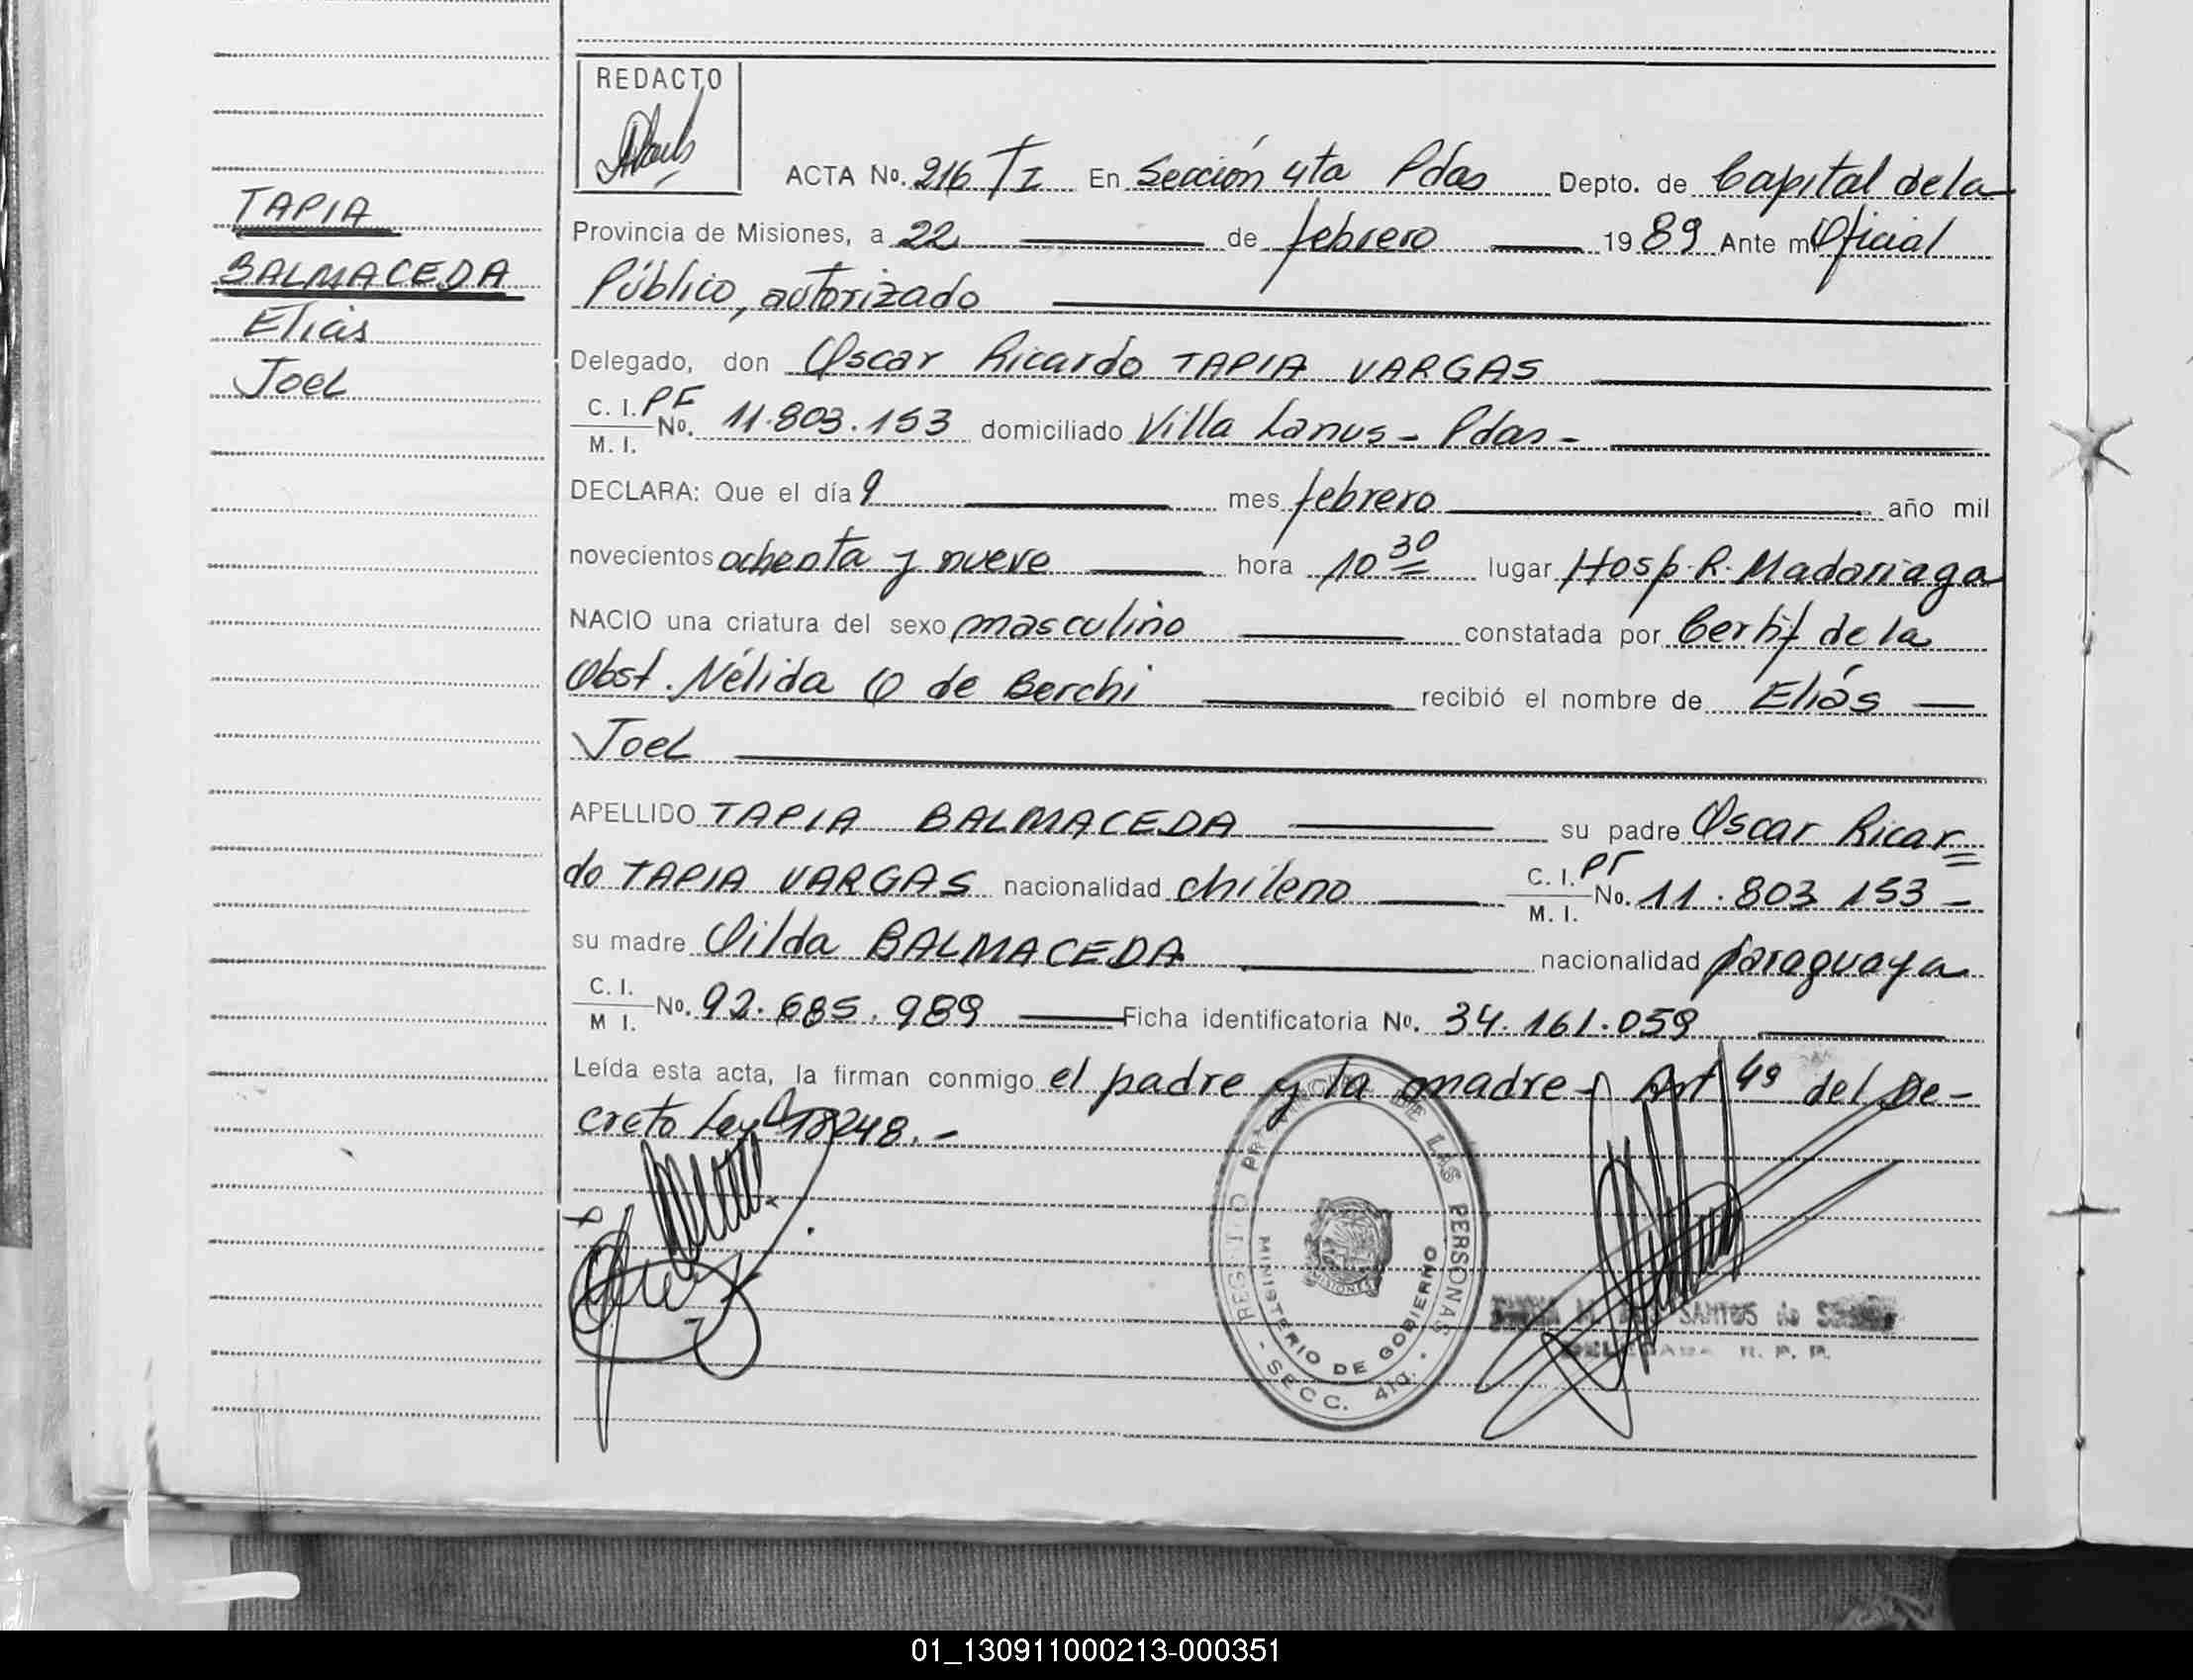 REDACTO
ACTA No. 216 TI En Sección 4ta Pdas Depto. de Capital de la
Provincia de Misiones, a 22 de febrero 1989 Ante mí Oficial
Público, autorizado
Delegado, don Oscar Ricardo TAPIA VARGAS
C. I. PF
M. I. No. 11.803.153 domiciliado Villa Lanus - Pdas -
DECLARA: Que el día 9 mes febrero año mil
novecientos ochenta y nueve hora 10 30 lugar Hosp. R. Madariaga
NACIO una criatura del sexo masculino constatada por Certif de la
Obst. Nélida O de Berchi recibió el nombre de Elías
Joel
APELLIDO TAPIA BALMACEDA su padre Oscar Ricar
do TAPIA VARGAS nacionalidad chileno C. I. PF M. I. No. 11.803 153 -
su madre Oilda BALMACEDA nacionalidad paraguaya
C. I. M I. No. 92.685.989 Ficha identificatoria No. 34.161.059
Leída esta acta, la firman conmigo el padre y la madre - Art 49 del De-
creto Ley 18248. -
TAPIA
BALMACEDA
Elías
Joel
REGISTRO PROVINCIAL DE LAS PERSONAS
MINISTERIO DE GOBIERNO
MISIONES
- SECC. 4ta. -
SANTOS de
DELEGADA R. P. P.
01_130911000213-000351